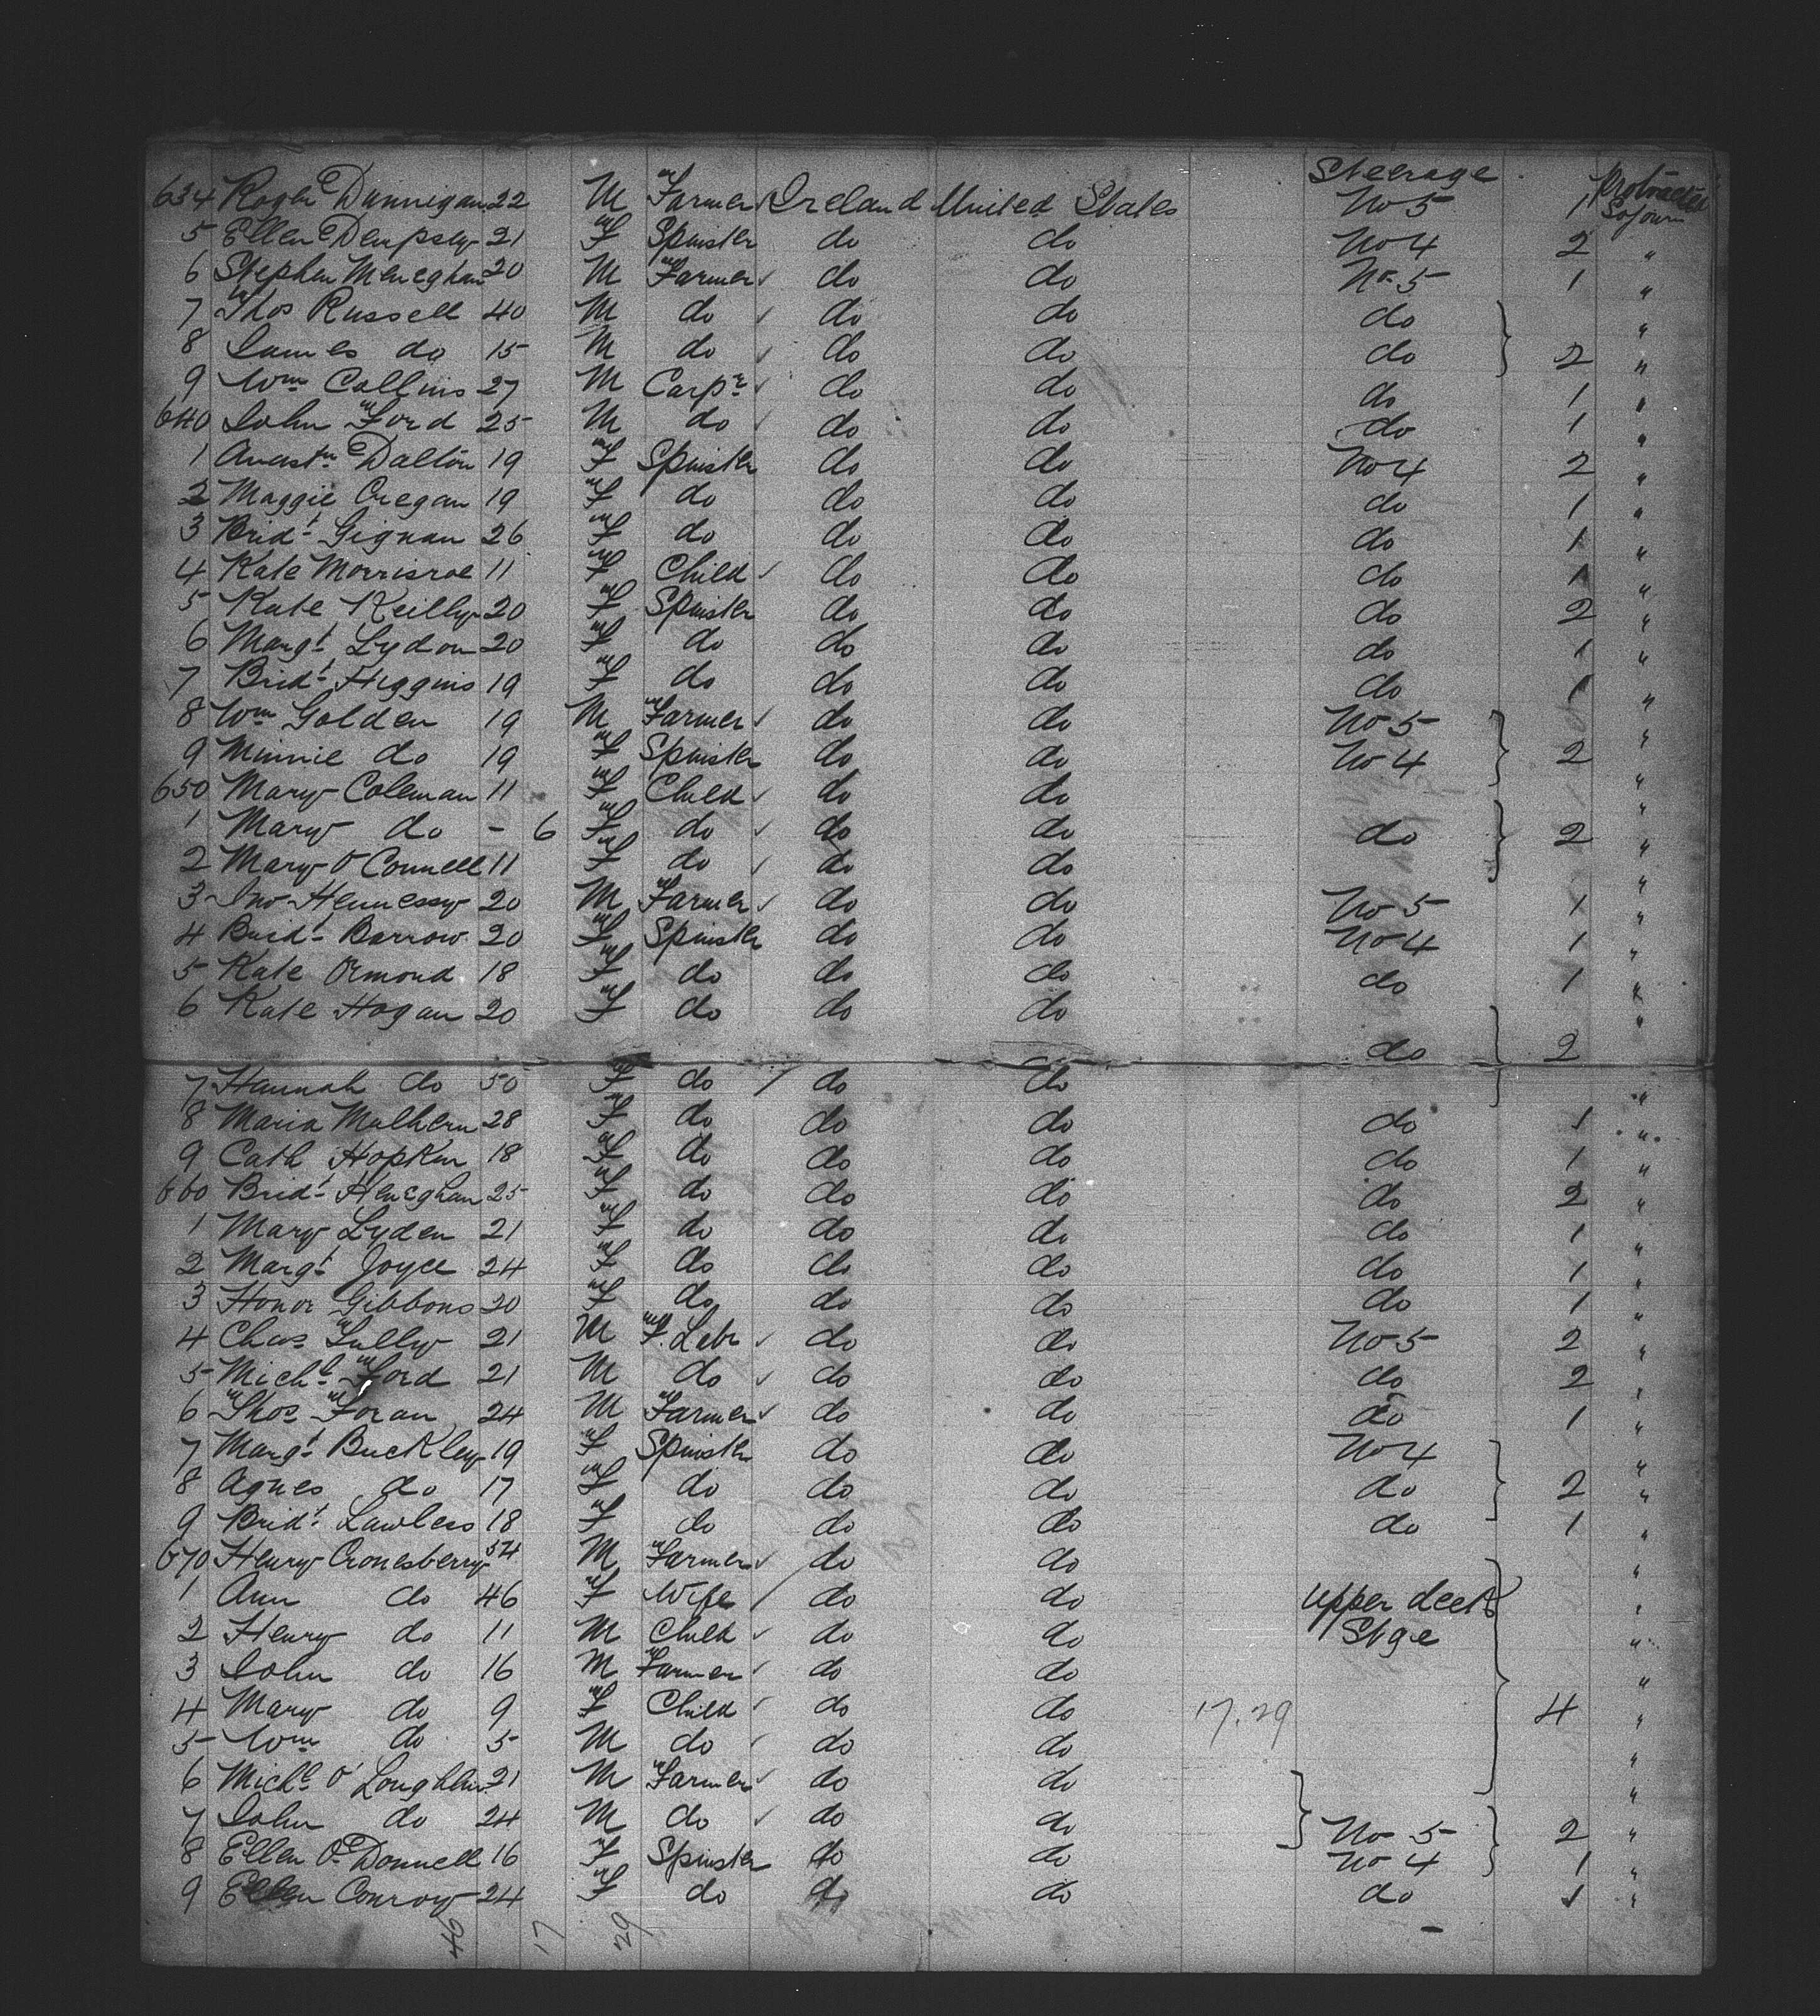 Steerage Protracted
634 Roger Dunnigan 22 M Farmer Ireland United States No 5 1 Sojourn
5 Ellen Dempsey 21 F Spinster do do No 4 2 "
6 Stephen Meneghan 20 M Farmer do do No 5 1 "
7 Thos Russell 40 M do do do do "
8 James do 15 M do do do do 2 "
9 Wm Collins 27 M Carpr do do do 1 "
640 John Ford 25 M do do do do 1 "
1 Anastn Dalton 19 F Spinster do do No 4 2 "
2 Maggie Cregan 19 F do do do do 1 "
3 Bridt Gignan 26 F do do do do 1 "
4 Kate Morrisroe 11 F Child do do do 1 "
5 Kate Reilly 20 F Spinster do do do 2 "
6 Margt Lydon 20 F do do do do 1 "
7 Bridt Higgins 19 F do do do do 1 "
8 Wm Golden 19 M Farmer do do No 5 "
9 Minnie do 19 F Spinster do do No 4 2 "
650 Mary Coleman 11 F Child do do "
1 Mary do - 6 F do do do do 2 "
2 Mary O'Connell 11 F do do do "
3 Jno Hennessy 20 M Farmer do do No 5 1 "
4 Bridt Barrow 20 F Spinster do do No 4 1 "
5 Kate Ormond 18 F do do do do 1 "
6 Kate Hogan 20 F do do do "
do 2
7 Hannah do 50 F do do do "
8 Maria Mulhern 28 F do do do do 1 "
9 Cath Hopkin 18 F do do do do 1 "
660 Bridt Heneghan 25 F do do do do 2 "
1 Mary Lyden 21 F do do do do 1 "
2 Margt Joyce 24 F do do do do 1 "
3 Honor Gibbons 20 F do do do do 1 "
4 Chas Tully 21 M F. Labr do do No 5 2 "
5 Michl Ford 21 M do do do do 2 "
6 Thos Foran 24 M Farmer do do do 1 "
7 Margt Buckley 19 F Spinster do do No 4 "
8 Agnes do 17 F do do do do 2 "
9 Bridt Lawless 18 F do do do do 1 "
670 Henry Cronesberry 54 M Farmer do do "
1 Ann do 46 F Wife do do Upper deck "
2 Henry do 11 M Child do do Stge "
3 John do 16 M Farmer do do "
4 Mary do 9 F Child do do 17.29 4 "
5 Wm do 5 M do do do "
6 Michl O'Loughlin 21 M Farmer do do "
7 John do 24 M do do do No 5 2 "
8 Ellen O'Donnell 16 F Spinster do do No 4 1 "
9 Ellen Conroy 24 F do do do do 1 "
46 17 29